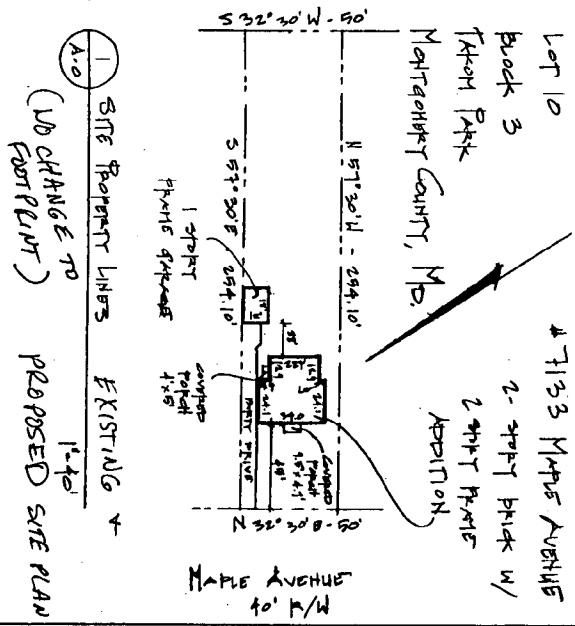 LOT 10
BLOCK 3
TAKOM PARK
MONTGOMERY COUNTY, MD.
# 7133 MAPLE AVENUE
2- STORY BRICK W/
2 STORY FRAME
ADDITION
S 32° 30' W - 50'
N 57° 30' W - 254.10'
S 57° 30' E 254.10'
1 STORY
FRAME GARAGE
COVERED
PORCH
4 x 5
COVERED
PORCH
PARTY DRIVE
N 32° 30' E - 50'
MAPLE AVENUE
40' R/W
1
A.0
SITE PROPERTY LINES
(NO CHANGE TO
FOOTPRINT)
EXISTING &
PROPOSED SITE PLAN
1"=40'